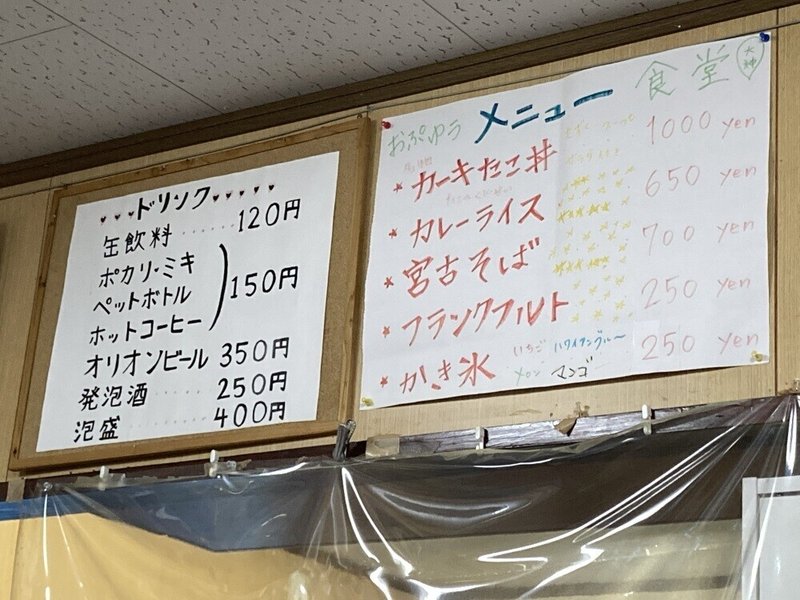 ドリンク
缶飲料 ...... 120円
ポカリ・ミキ
ペットボトル
ホットコーヒー
150円
オリオンビール 350円
発泡酒 ...... 250円
泡盛 ........ 400円
おぷゆう メニュー 食堂
大神
カーキたこ丼 1000 yen
カレーライス 650 yen
宮古そば 700 yen
フランクフルト 250 yen
かき氷 いちご ハワイアンブルー 250 yen
メロン マンゴー